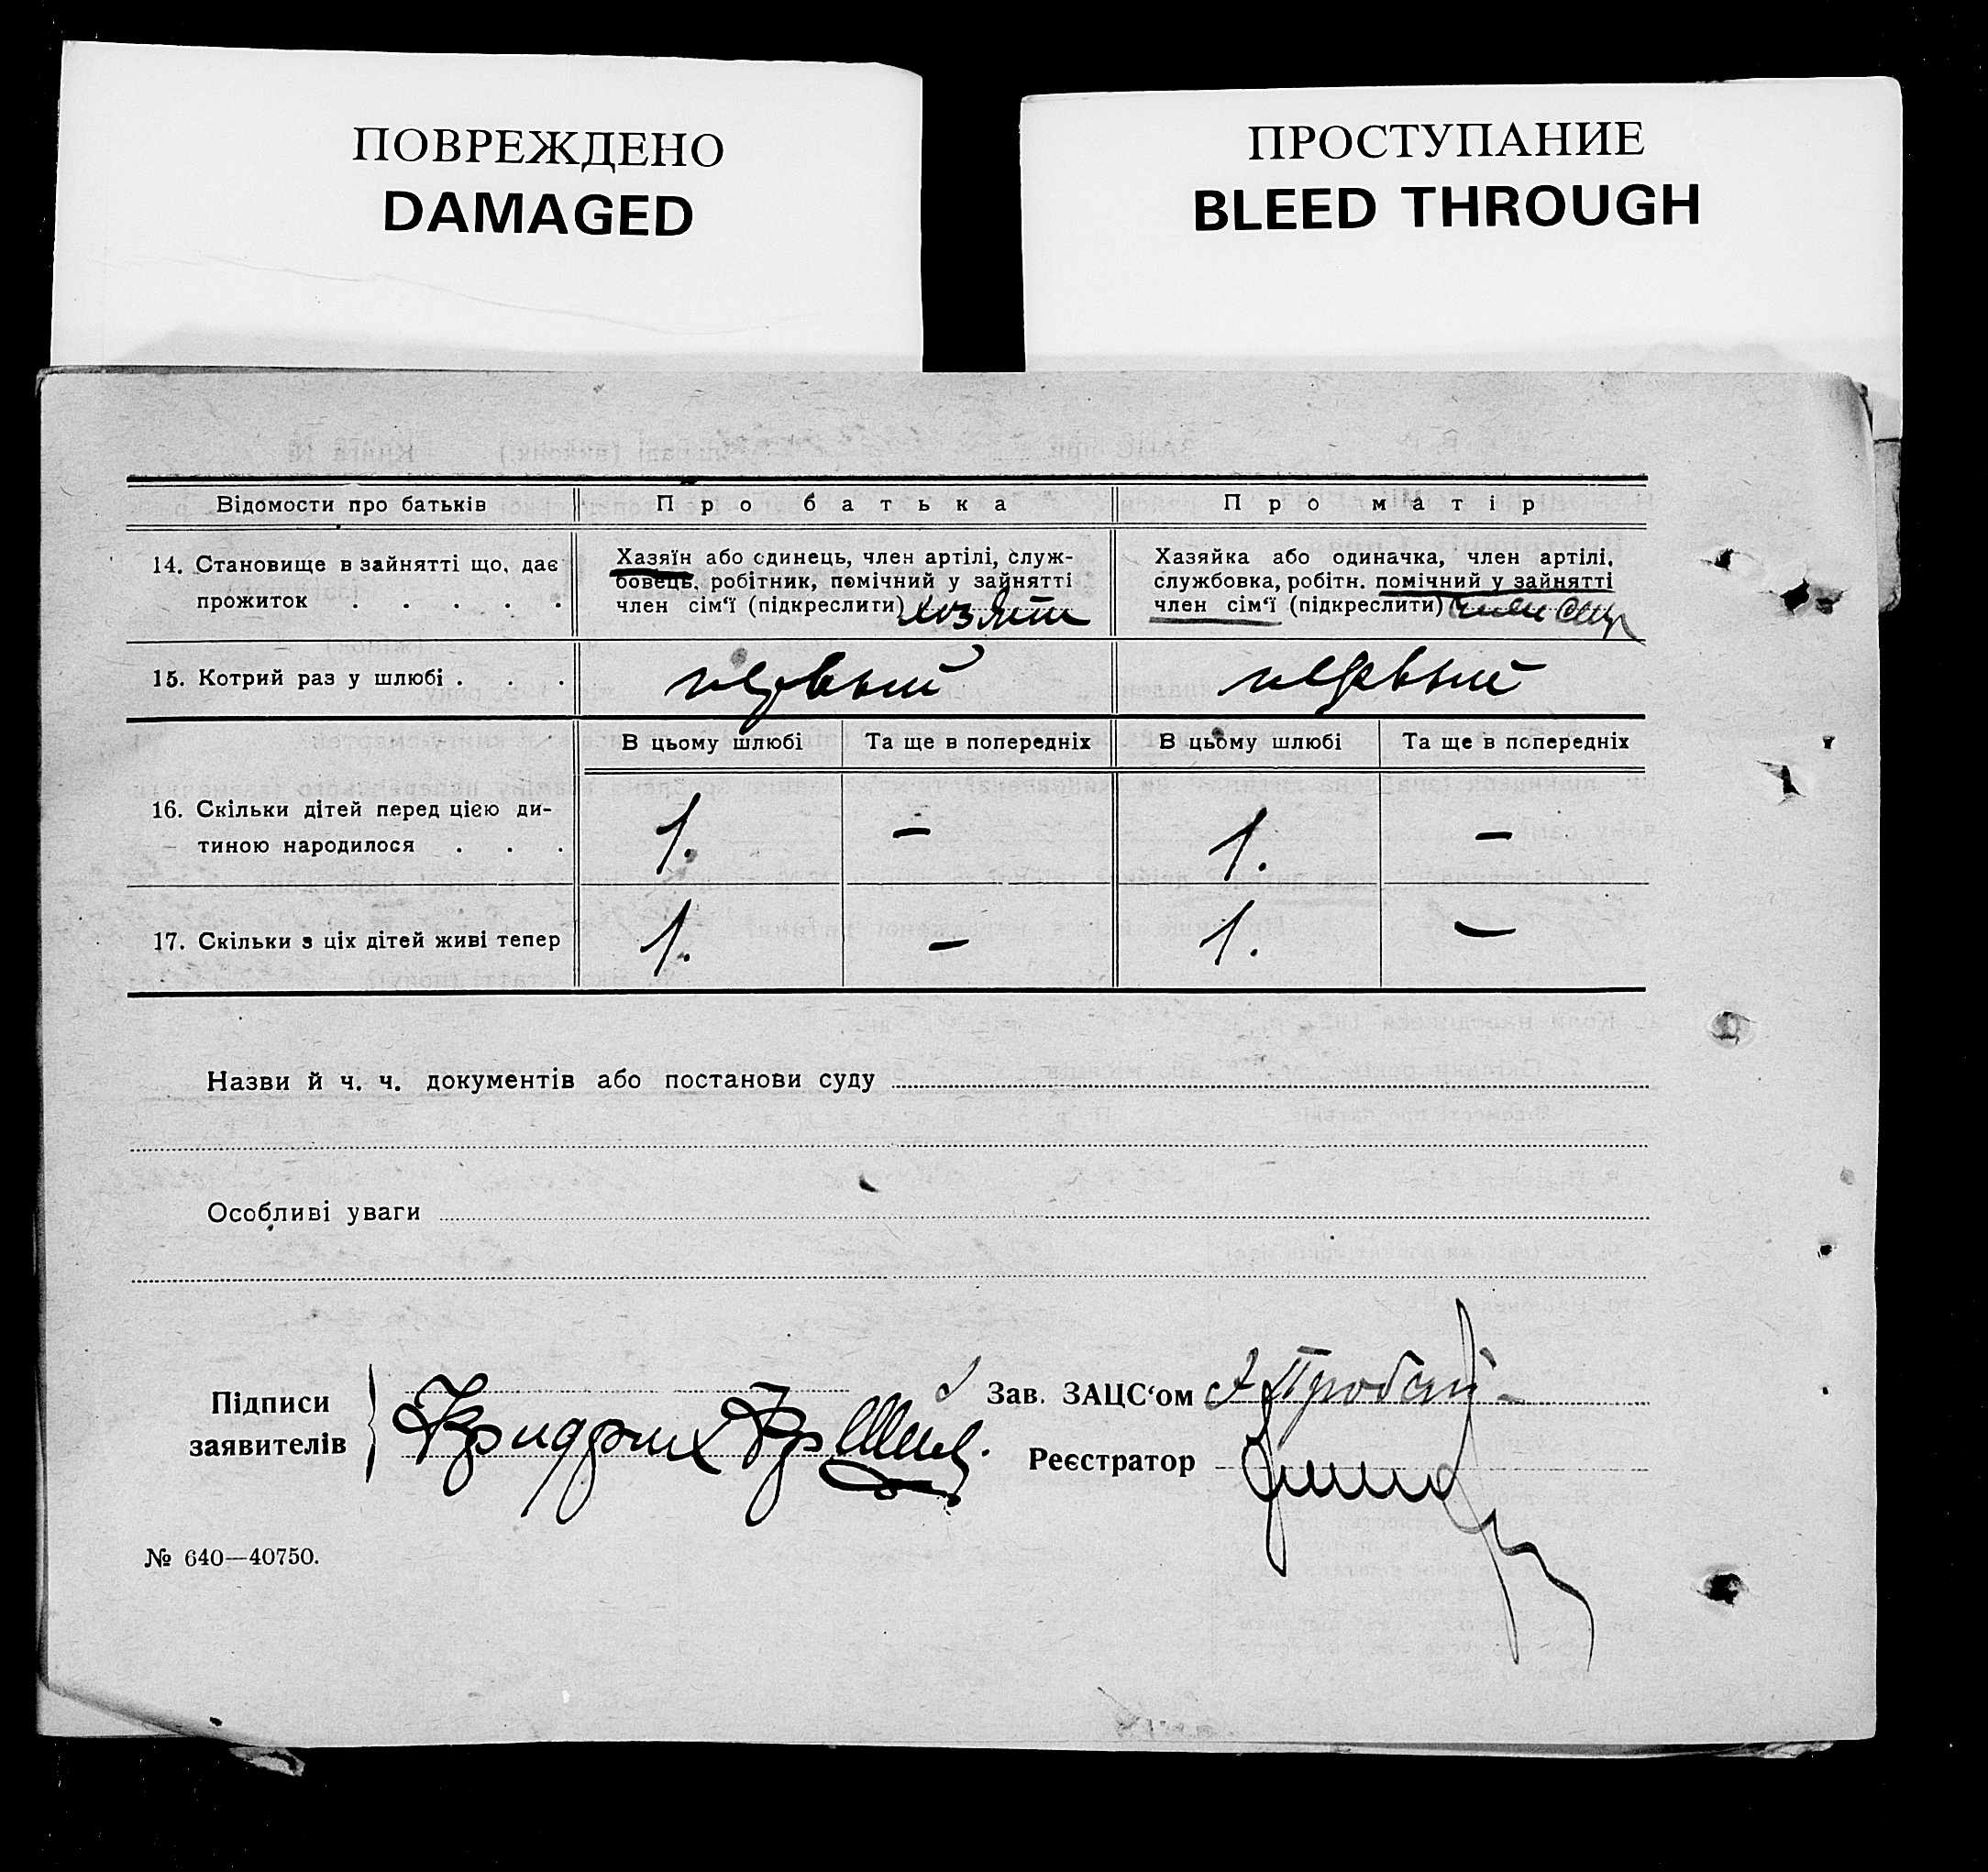 ПОВРЕЖДЕНО
DAMAGED
ПРОСТУПАНИЕ
BLEED THROUGH
Відомости про батьків
Про батька
Про матір
14. Становище в зайнятті що, дає
прожиток . . . . .
Хазяїн або єдинець, член артілі, служ-
бовець, робітник, помічний у зайнятті
член сім'ї (підкреслити) хозяин
Хазяйка або одиначка, член артілі,
службовка, робітн. помічний у зайнятті
член сім'ї (підкреслити) член
15. Котрий раз у шлюбі . . .
первый
первый
В цьому шлюбі
Та ще в попередніх
В цьому шлюбі
Та ще в попередніх
16. Скільки дітей перед цією ди-
тиною народилося . . .
1.
–
1.
–
17. Скільки з ціх дітей живі тепер
1.
–
1.
–
Назви й ч. ч. документів або постанови суду
Особливі уваги
Підписи
заявителів
Фридрих Фр
Зав. ЗАЦС'ом
Реєстратор
№ 640—40750.